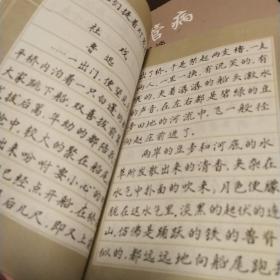 管病
社戏
鲁迅
一出门，便望见
平桥内泊着一只白
大家跳下船，双喜拔前
拔后篙，年幼的都陪
中，较大的聚在船尾
出来吩咐“要小心”的
已经点开船，在桥
后几尺，即又上前
了桥。于是架起两支橹，一支
两人，一里一换，有说笑的，有
的，夹着潺潺的船头激水
的声音，在左右都是碧绿的豆
田地的河流中，飞一般径
庄前进了。
两岸的豆麦和河底的水
草所发散出来的清香，夹杂在
水气中扑面的吹来；月色便朦
胧在这水气里。淡黑的起伏的连
山，仿佛是踊跃的铁的兽脊
似的，都远远地向船尾跑